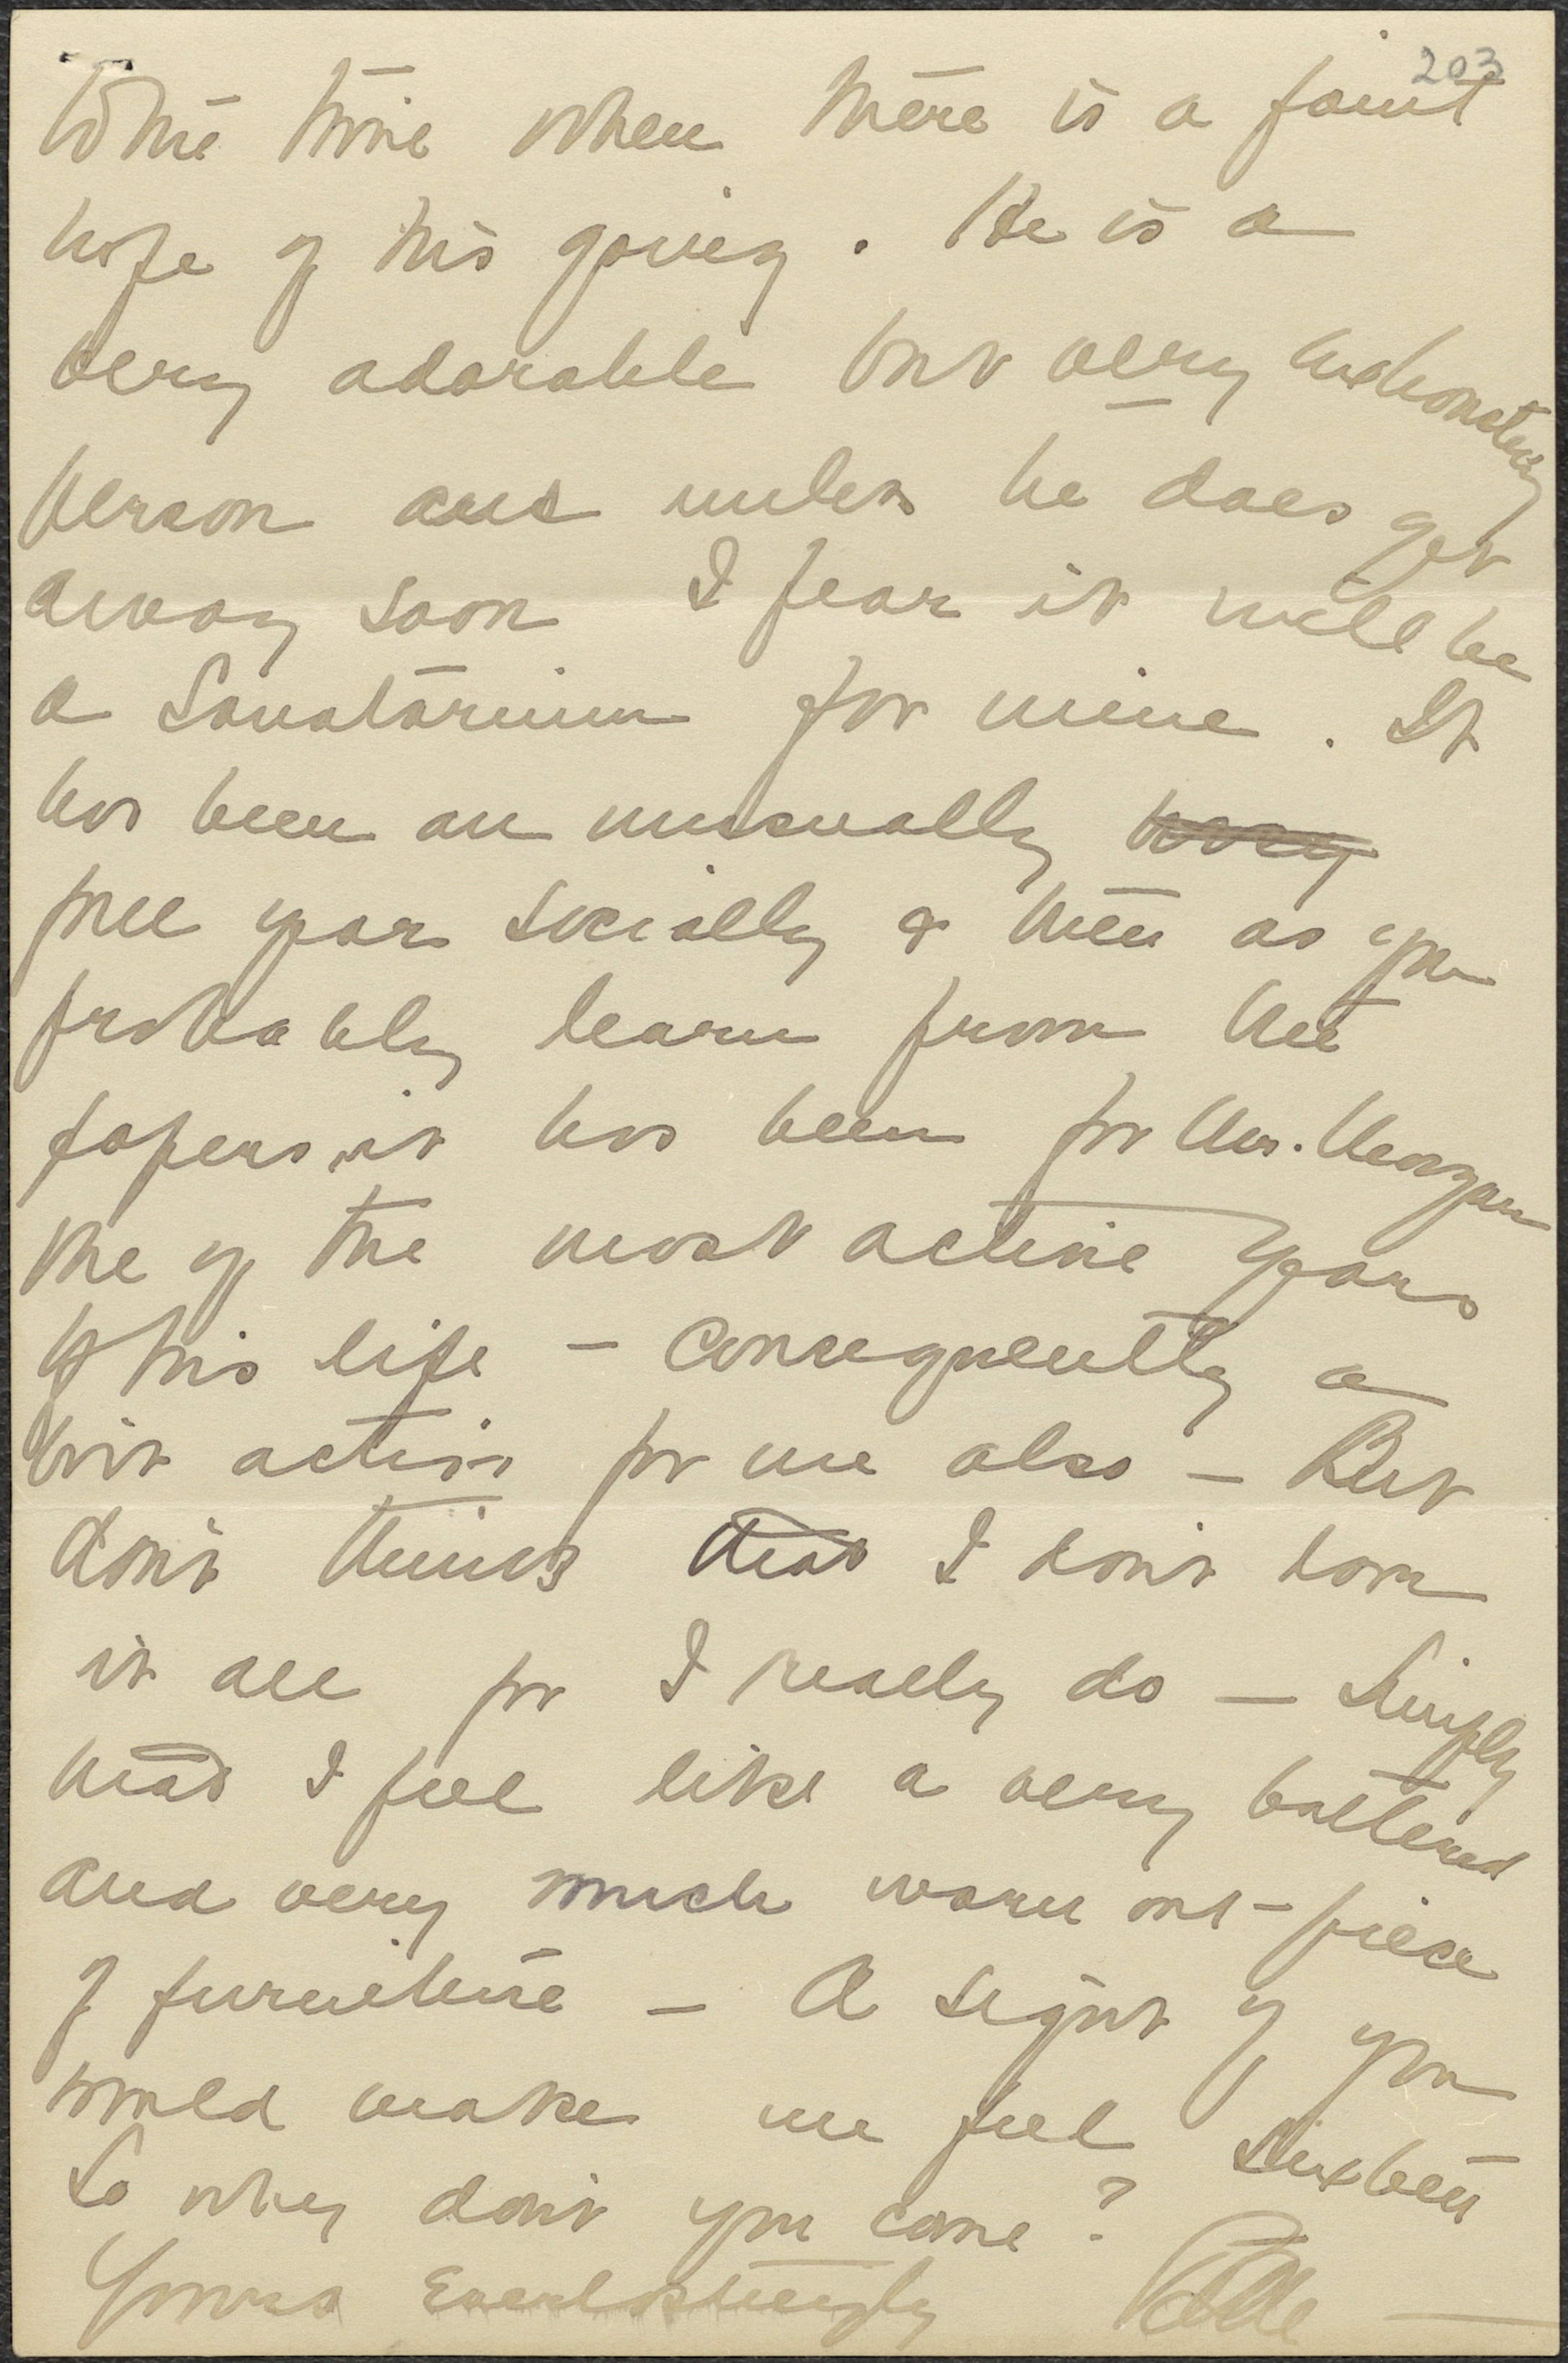 203
to the time when there is a faint
hope of his going. He is a
very adorable but very exhausting
person and unless he does get
away soon I fear it will be
a Sanatarium for mine. It
has been an unusually busy
full year socially & then as you
probably learn from the
papers, it has been for Mr. Morgan
one of the most active years
of his life - Consequently a
bit active for me also - But
don't think that I don't love
it all for I really do - Simply
that I feel like a very battered
and very much worn out-piece
of furniture - A sight of you
would make me feel sixteen
So why don't you come?
Yours Everlastingly Belle -